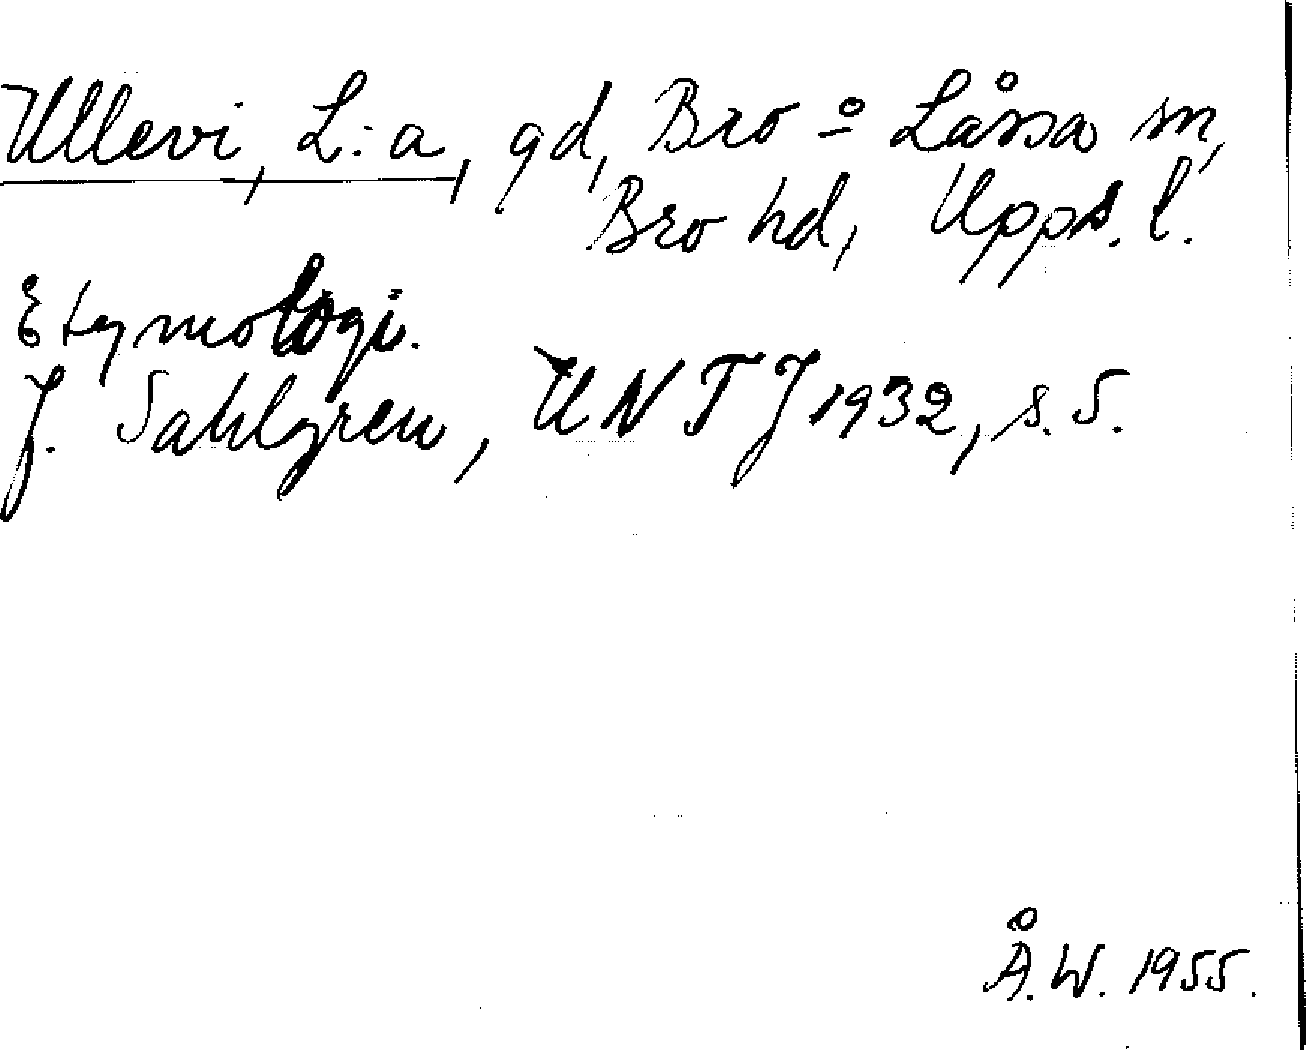 Ullevi, L:a, gd, Bro o Låssa sn,
Bro hd, Upps. l.
Etymologi.
J. Sahlgren, UNT J 1932, s. 5.
Å.W. 1955.